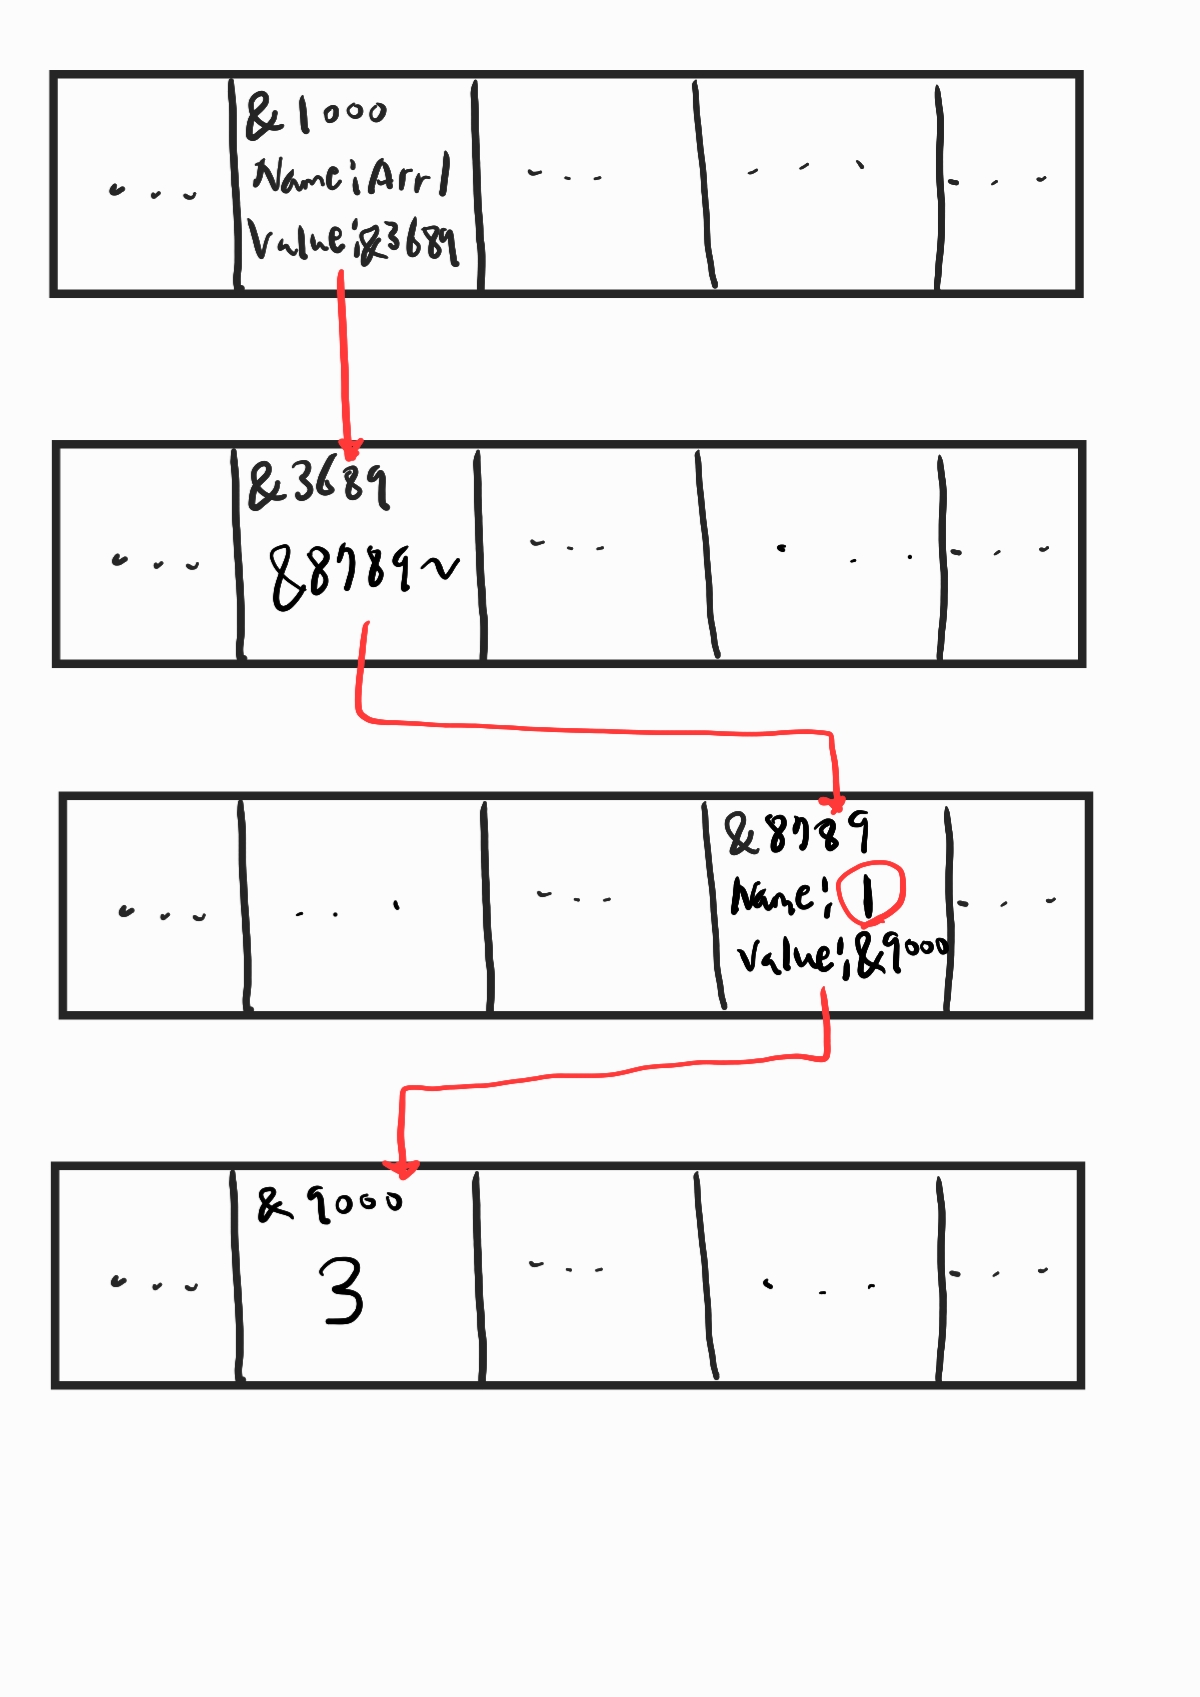 &1000
Name:Arr1
Value:&3689
&3689
&8789~
&8789
Name:1
Value:&9000
&9000
3